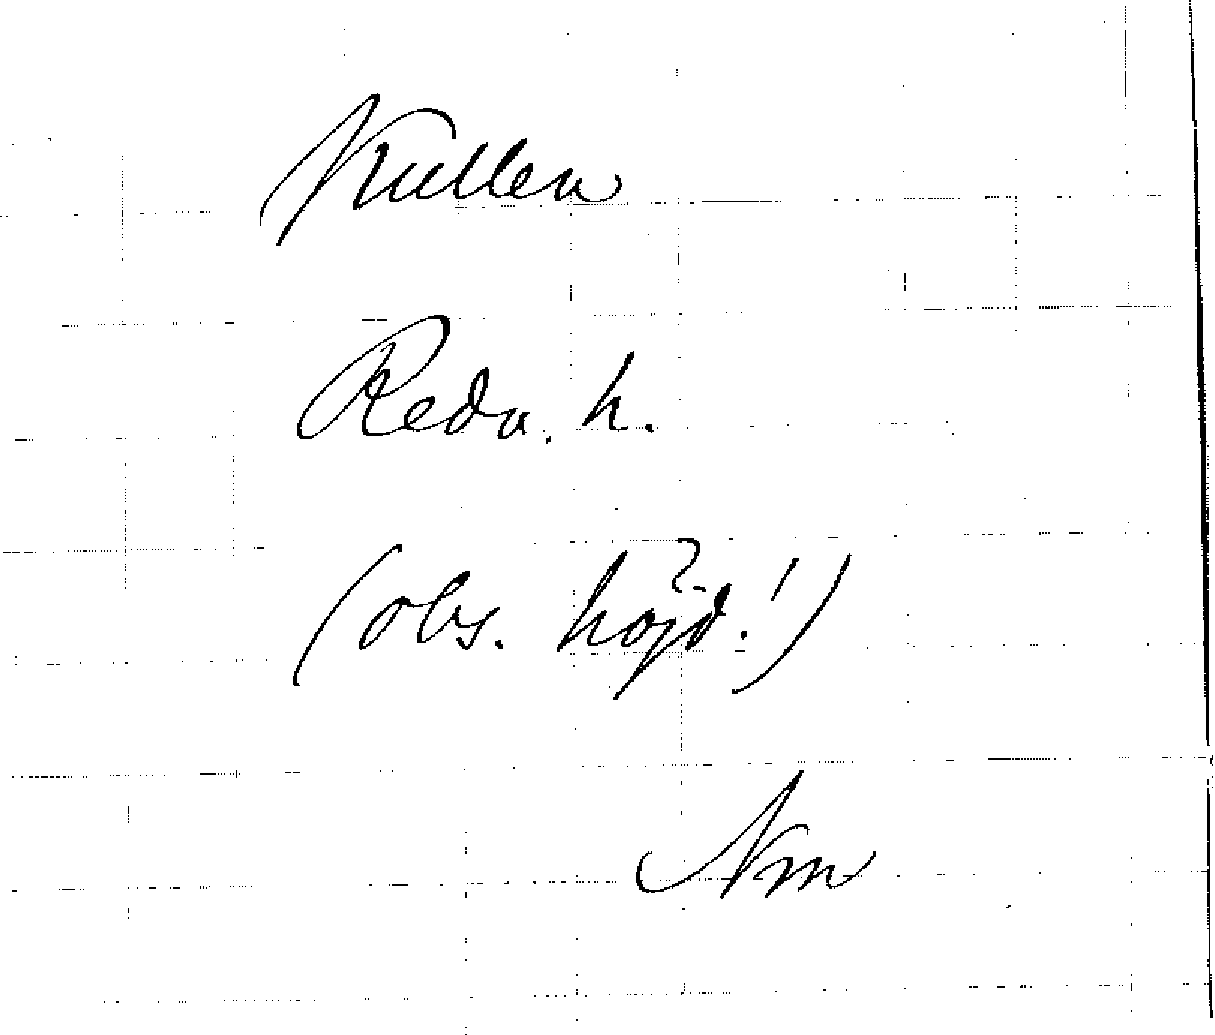 Kullen
Reda. h.
(obs. höjd!)
Nm